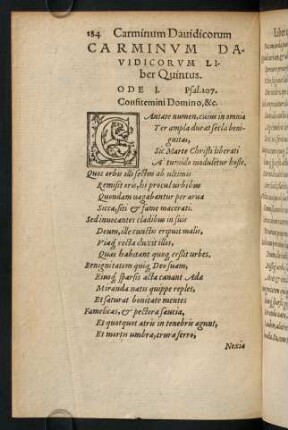 184 Carminum Dauidicorum
CARMINVM DA-
VIDICORVM LI-
ber Quintus.
ODE I. Psal. 107.
Confitemini Domino, &c.
CAntate numen, cuius in omnia
Ter ampla durat secla beni-
gnitas,
Sic Marte Christi liberati
A' turbido modulétur hoste.
Quos orbis illi sectus ab ultimis
Remisit oris, hi procul urbibus
Quondam uagabantur per arua
Sicca, siti & fame macerati.
Sed inuocantes cladibus in suis
Deum, ille cunctis eripuit malis,
Viaq; recta duxit illos,
Quas habitant quoq; ersit urbes.
Benignitatem quiq; Deo suam,
Eiusq; sparsis acta canant Adæ
Miranda natis quippe replet,
Et saturat bonitate mentes
Famelicas, & pectora saucia,
Et quotquot atris in tenebris agunt,
Et mortis umbra, trura ferro,
Nexia